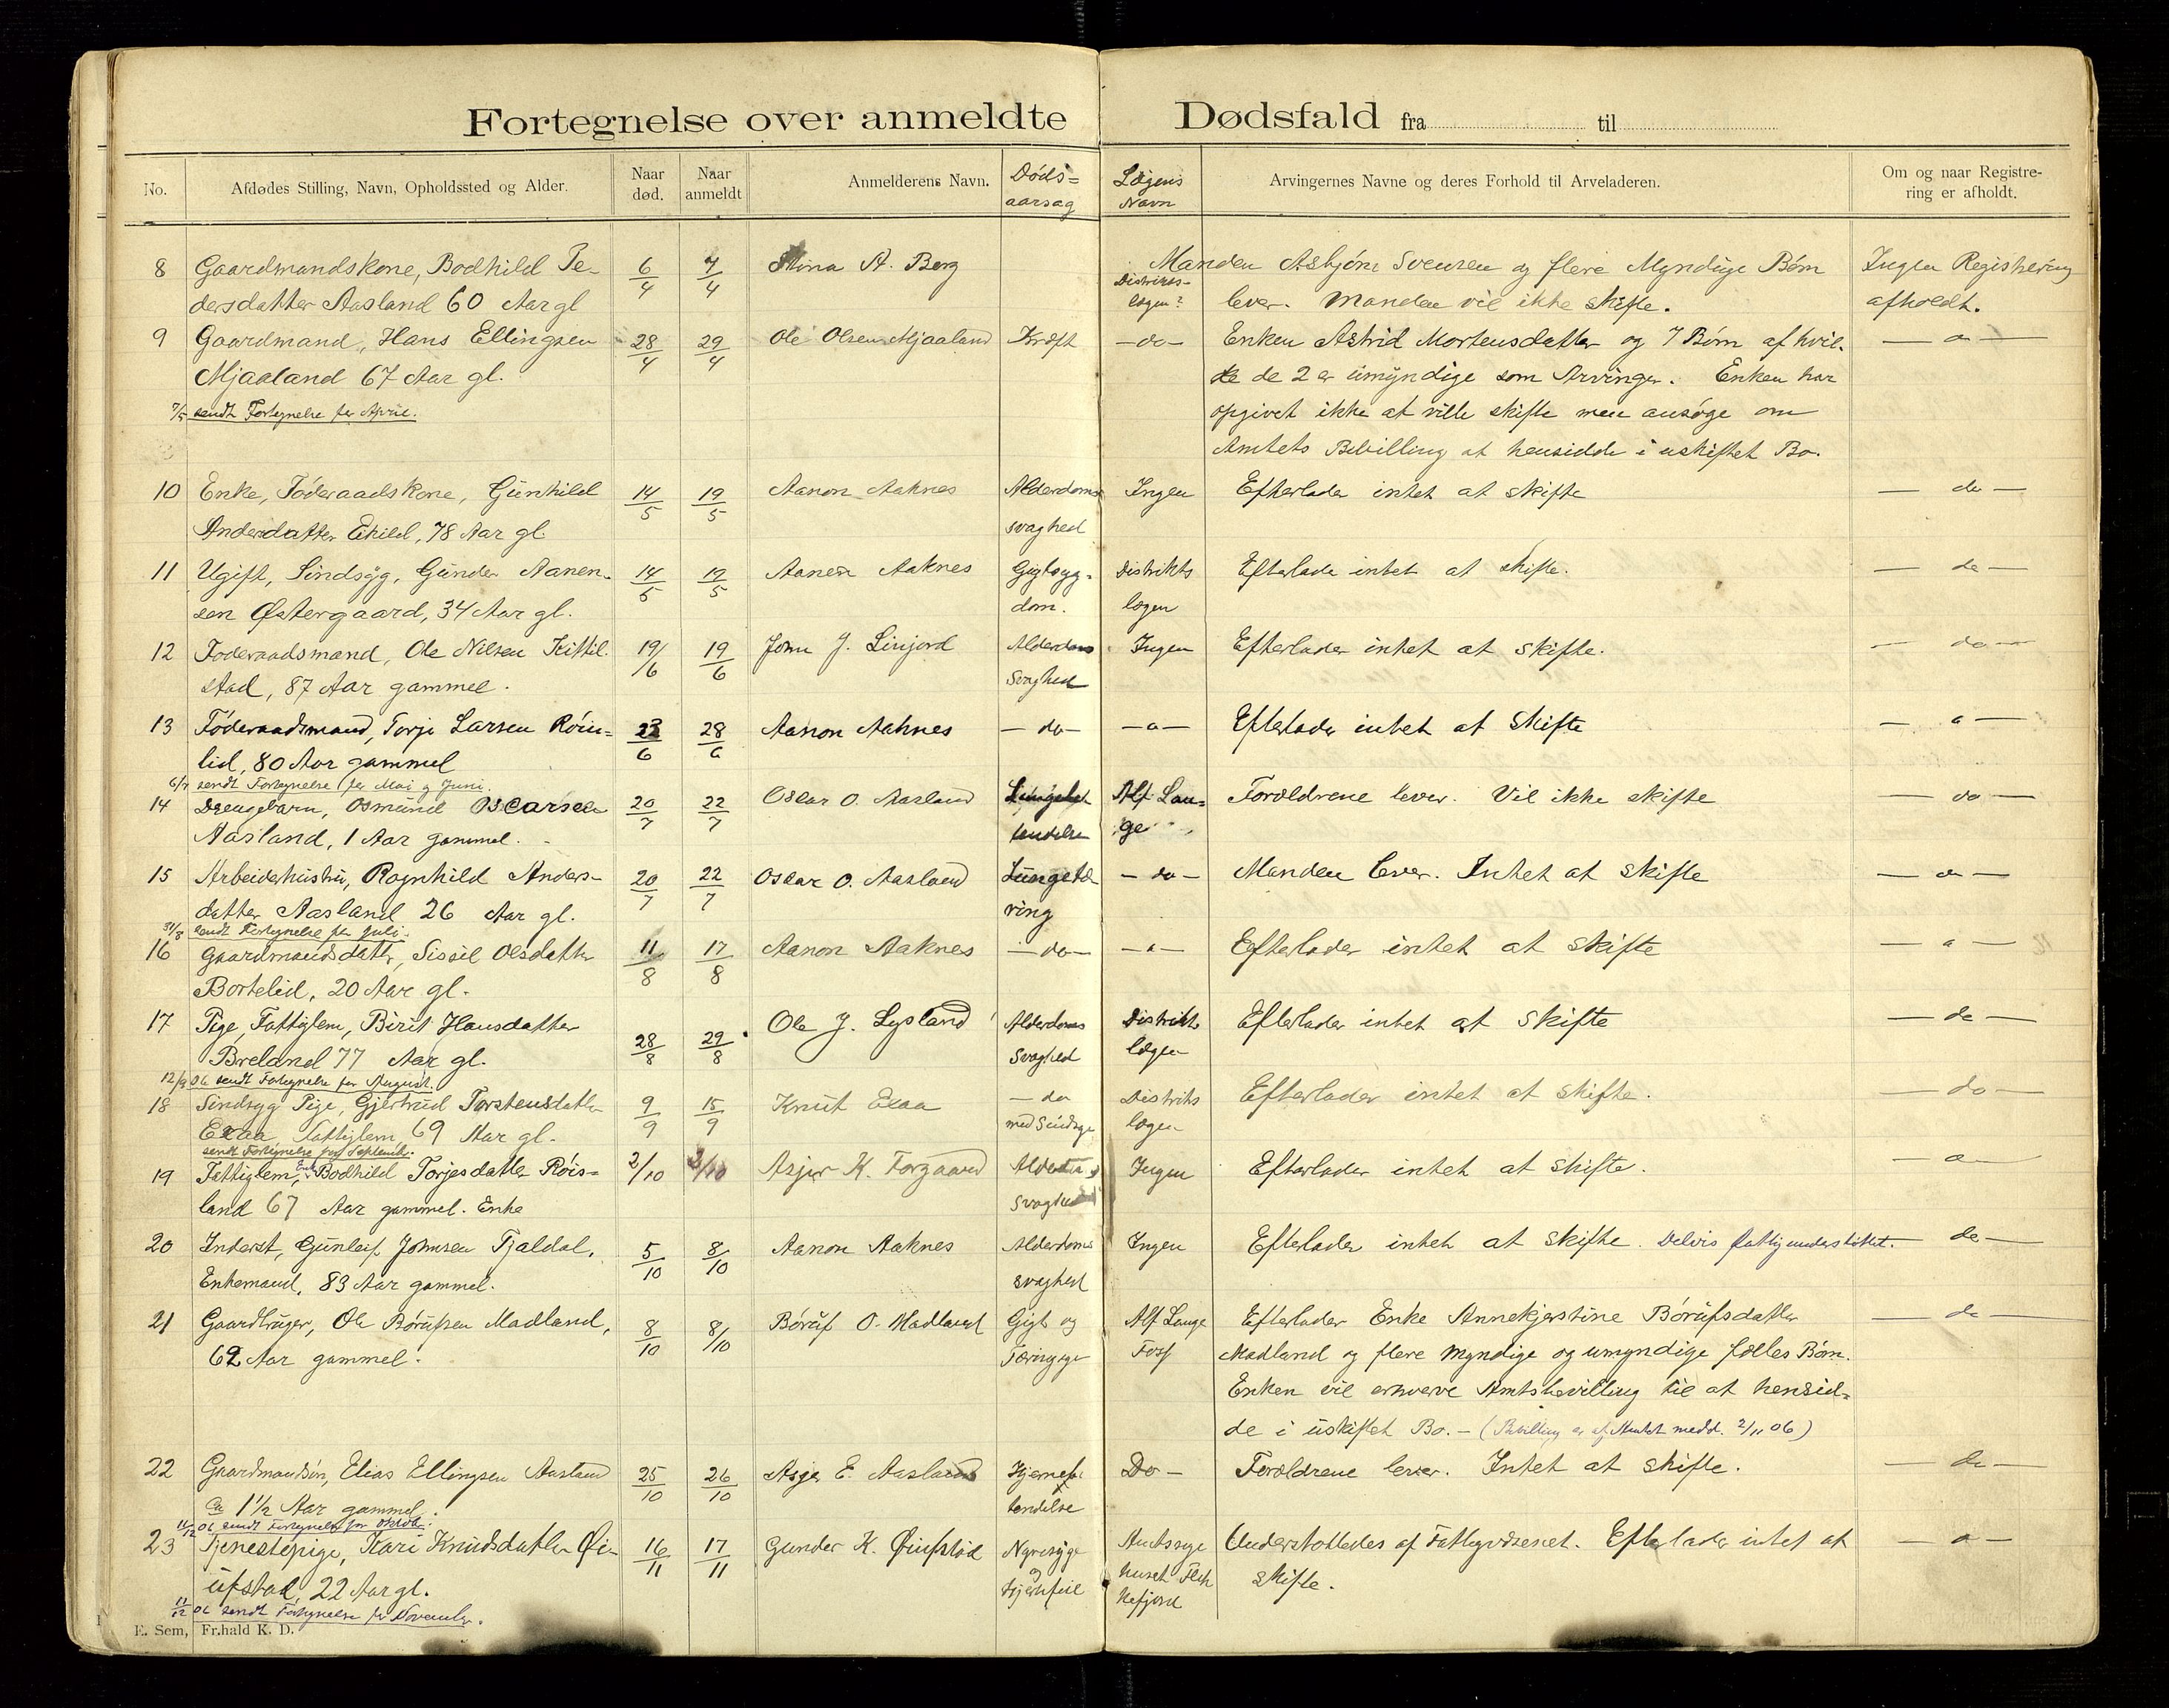 Fortegnelse over anmeldte Dødsfald fra til
No. Afdødes Stilling, Navn, Opholdssted og Alder. Naar død. Naar anmeldt Anmelderens Navn. Døds=aarsag Lægens Navn Arvingernes Navne og deres Forhold til Arveladeren. Om og naar Registrering er afholdt.
8 Gaardmandskone, Bodhild Pe- 6/4 7/4 Stina A. Berg Manden Asbjørn Svensen og flere Myndige Børn Ingen Registrering
dersdatter Aasland 60 Aar gl Distrikts-lægen? lever. Manden vil ikke skifte. afholdt.
9 Gaardmand, Hans Ellingsen 28/4 29/4 Ole Olsen Mjaaland Kræft - do - Enken Astrid Mortensdatter og 7 Børn af hvil-
Mjaaland 67 Aar gl. ke de 2 er umyndige som Arvinger. Enken har
7/5 sendt Fortegnelse for April. opgivet ikke at ville skifte men ansøge om
Amtets Bevilling at hensidde i uskiftet Bo.
10 Enke, Føderaadskone, Gunhild 14/5 19/5 Aanon Aaknes Alderdoms Ingen Efterlader intet at skifte - do -
Andersdatter Ekild, 78 Aar gl. svaghed
11 Ugift, Sindsyg, Gunder Aanen- 14/5 19/5 Aanon Aaknes Gigtsyg- Distrikts Efterlade intet at skifte. - do -
sen Østergaard, 34 Aar gl. dom. lægen
12 Føderaadsmand, Ole Nilsen Kittil- 19/6 19/6 John J. Linjord Alderdoms Ingen Efterlader intet at skifte. - do -
stad, 87 Aar gammel. svaghed
13 Føderaadsmand, Torje Larsen 23/6 28/6 Aanon Aaknes - do - - " - Efterlader intet at skifte - " -
lid, 80 Aar gammel
6/7 sendt Fortegnelse for Mai og Juni.
14 Drengebarn, Osmund Oscarsen 20/7 22/7 Oscar O. Aasland Alf Lan= Forældrene lever. Vil ikke skifte - do -
Aasland, 1 Aar gammel. tendelse ge
15 Arbeiderhustru, Ragnhild Anders- 20/7 22/7 Oscar O. Aasland Lungetæ - do - Manden lever. Intet at skifte - do -
datter Aasland 26 Aar gl. ring
31/8 sendt Fortegnelse for Juli.
16 Gaardmandsdatter, Sissil Olsdatter 11/8 17/8 Aanon Aaknes - do - - " - Efterlader intet at skifte - " -
Bortelid, 20 Aar gl.
17 Pige, Fattiglem, Birit Hansdatter 28/8 29/8 Ole J. Lysland Alderdoms Distrikts Efterlader intet at skifte - do -
Breland 77 Aar gl. svaghed lægen
12/9 06 sendt Fortegnelse for August.
18 Sindsyg Pige, Gjertrud Torstensdatter 9/9 15/9 Knut Exaa - do Distrikts Efterlader intet at skifte. - do -
Exaa, Fattiglem 69 Aar gl. med Sindsyge lægen
sendt Fortegnelse for Septemb.
19 Fattiglem, Enke Bodhild Torjesdatter Røis= 2/10 3/10 Asjer K. Forgaard Alderdoms Ingen Efterlader intet at skifte. - " -
land 67 Aar gammel. Enke svaghed
20 Inderst, Gunleif Johnsen Fjaldal, 5/10 8/10 Aanon Aaknes Alderdoms Ingen Efterlader intet at skifte. Delvis fattigunderstøttet. - do -
Enkemand, 83 Aar gammel. svaghed
21 Gaardbruger, Ole Børufsen Madland, 8/10 8/10 Børuf O. Madland Gigt og Alf Lange Efterlader Enke Annekjerstine Børufsdatter - do -
62 Aar gammel. Foss Madland og flere Myndige og umyndige fælles Børn.
Enken vil erhverve Amtsbevilling til at hensid=
de i uskiftet Bo. - (Bevilling er af Amtet medd. 2/11 06)
22 Gaardmandsøn, Elias Ellingsen Aasland 25/10 26/10 Asge E. Aasland Hjernebe Do - Forældrene lever. Intet at skifte. - do -
ca 1½ Aar gammel. tendelse
11/12 06 sendt Fortegnelse for Oktob.
23 Tjenestepige, Kari Knudsdatter Øi- 16/11 17/11 Gunder K. Øiufstad Nyresyge Amtssyge Understøttedes af Fattigvæsenet. Efterlader intet at - " -
ufstad, 22 Aar gl. og Hjertefeil huset Flek skifte.
11/12 06 sendt Fortegnelse for November. kefjord
E. Sem, Fr.hald K. D.